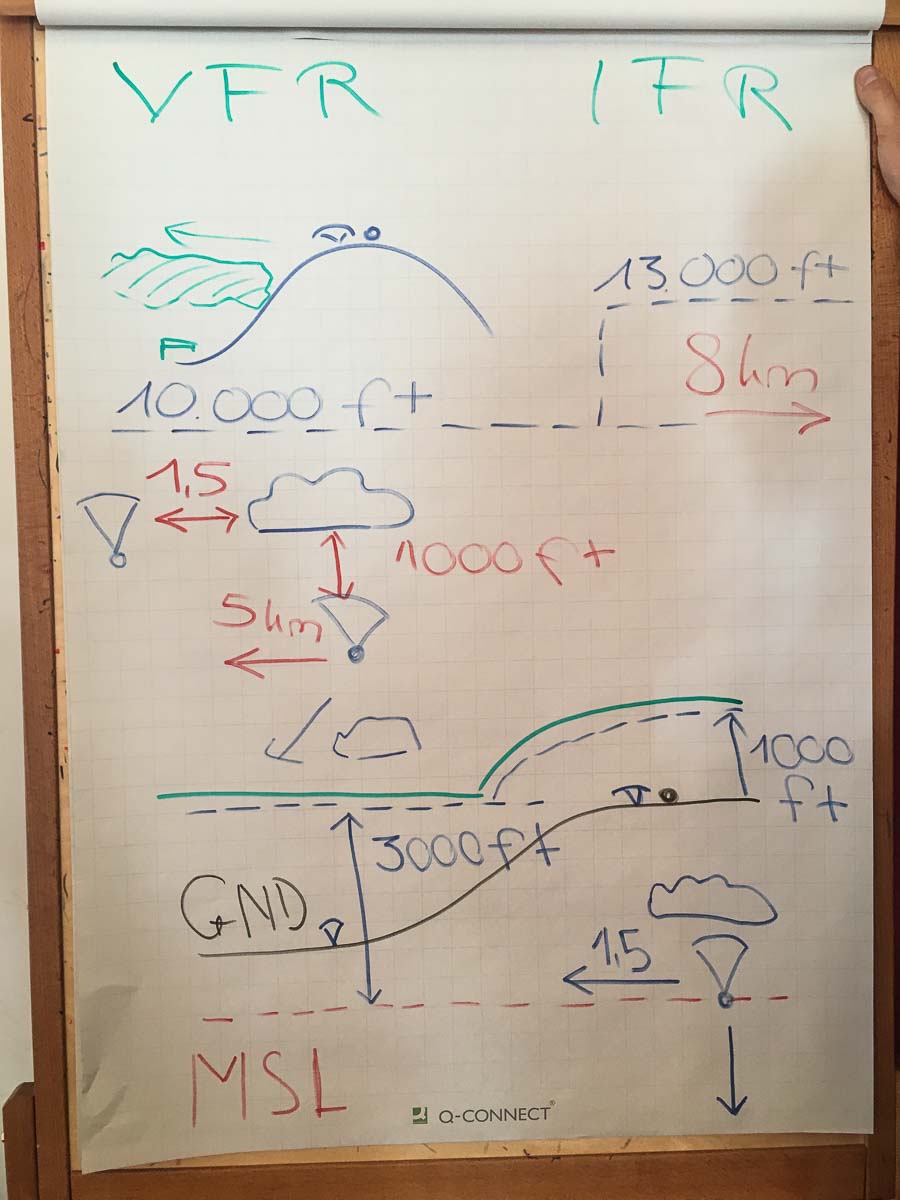 VFR IFR
13.000 ft
8km
10.000 ft
1,5
1000 ft
5km
1000
ft
3000 ft
GND
1,5
MSL
Q-CONNECT®